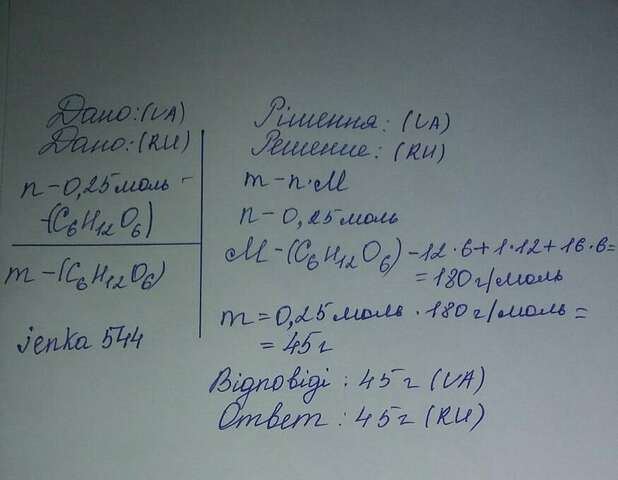 Дано: (UA)
Дано: (RU)
n - 0,25 моль -
-(C₆H₁₂O₆)
m - (C₆H₁₂O₆)
jenka 544
Рішення: (UA)
Решение: (RU)
m - n · M
n - 0,25 моль
M - (C₆H₁₂O₆) - 12 · 6 + 1 · 12 + 16 · 6 =
= 180 г/моль
m = 0,25 моль · 180 г/моль =
= 45 г
Відповіді : 45 г (UA)
Ответ : 45 г (RU)